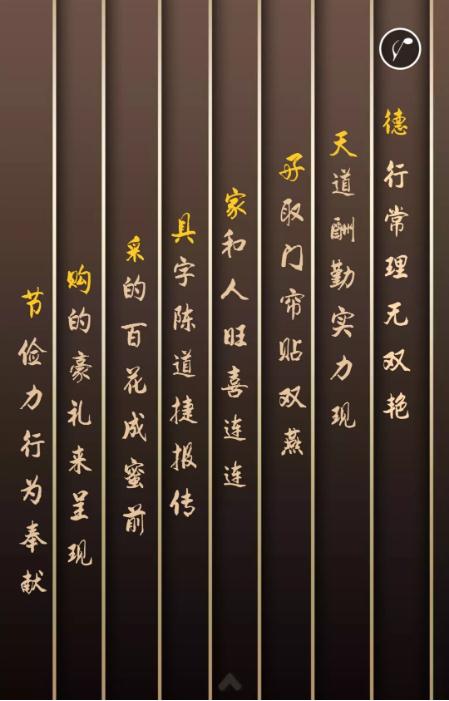 德行常理无双艳
天道酬勤实力现
好取门帘贴双燕
家和人旺喜连连
具字陈道捷报传
采的百花成蜜前
购的豪礼来呈现
节俭力行为奉献